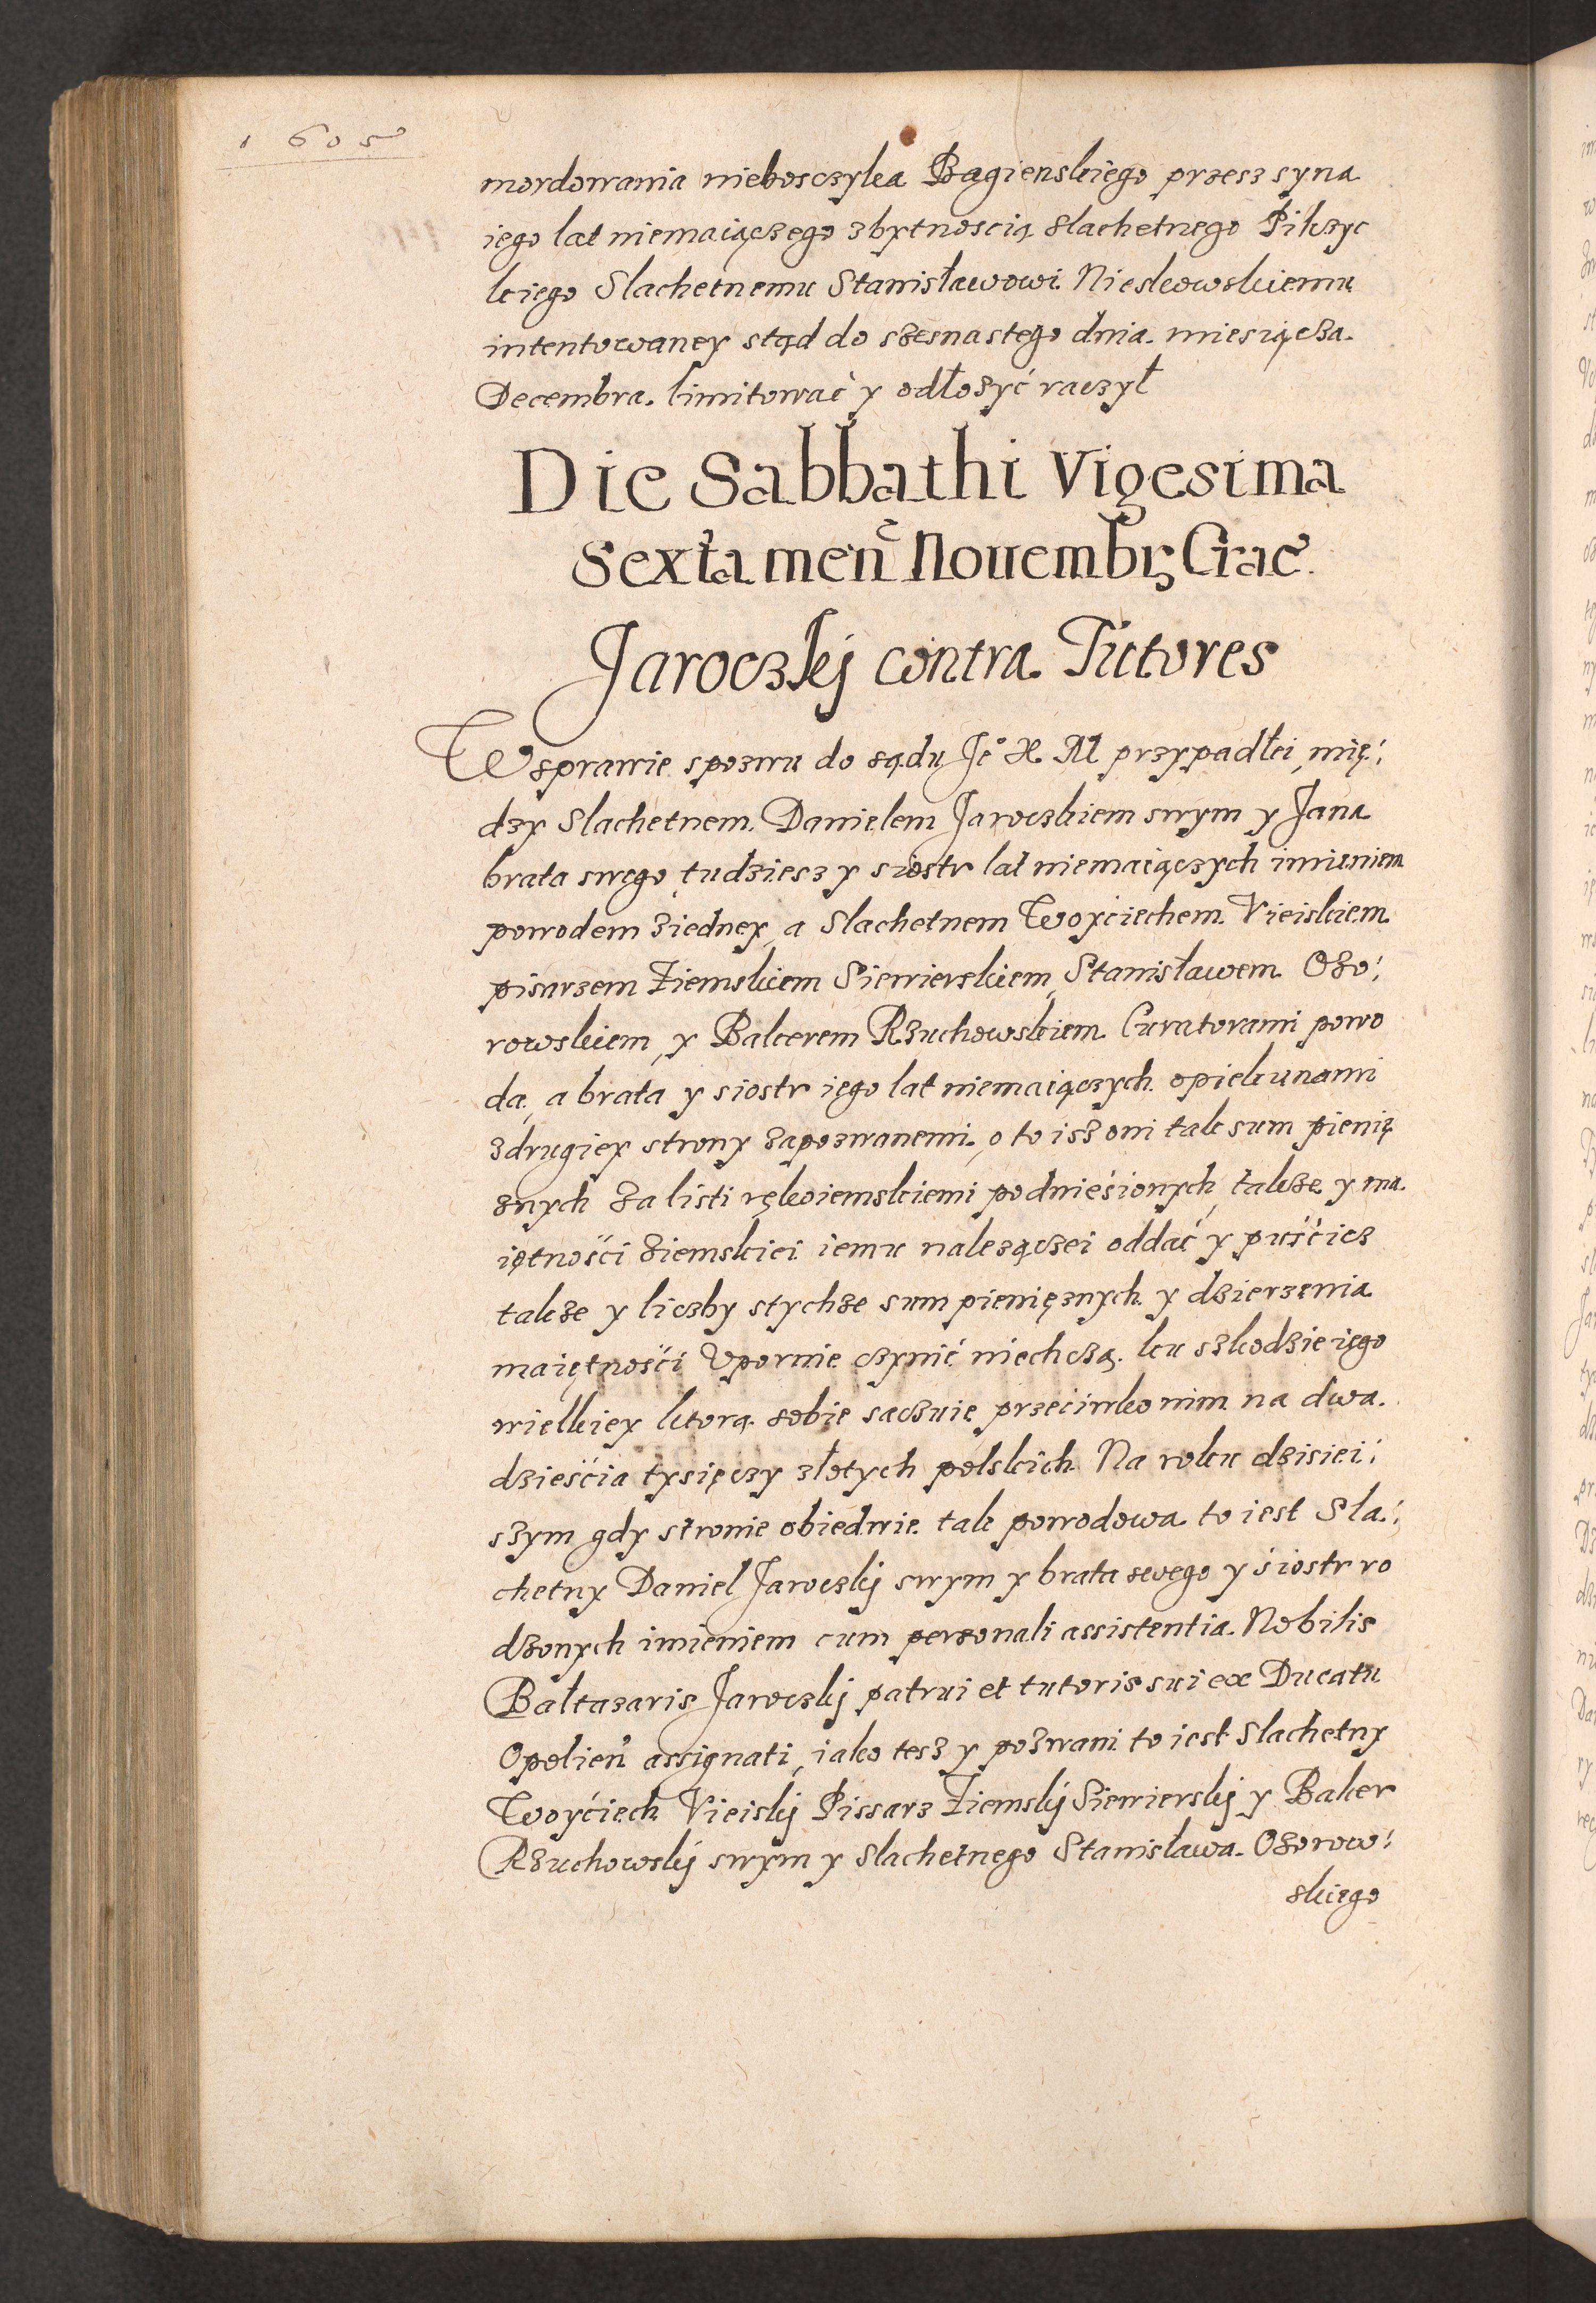 1605
mordowania niebosczyka Bagienskiego przesz syna
iego lat niemaiączego zbytnoscią slachetnego Pilczyc
kiego Slachetnemu Stanisławowi Nieskowskiemu
intentowaney stąd do szesnastego dnia miesiącza
Decembra. limitować y odłożyć raczył
Die Sabbathi Vigesima
Sexta men̄ Nouembrꝭ Crac̄.
Jaroczkÿ contra Tutores
W sprawie spozwu do sądu Je° K. M przypadłei, mię:
dzy Slachetnem Danielem Jaroczkiem swym y Jana
brata swego, tudziesz y siostr lat niemaiączych imieniem
powodem ziedney, a Slachetnem Woyciechem Vieiskiem
pisarzem Ziemskiem Siewierskiem, Stanisławem Ożo:
rowskiem, y Balcerem Rzuchowskiem Curatorami powo
da, a brata y siostr iego lat niemaiączych opiekunami
zdrugiey strony zapozwanemi, o to isz oni tak sum pienię
znych za listi rękoiemskiemi podnieśionych, takze y ma
iętnośći ziemskiei iemu nalezączei oddać y puśćicz
takze y liczby stychze sum pienięznych y dzierzenia
maiętnośći Vpornie czynić niechczą. ku szkodzie iego
wielkiey ktorą sobie saczuie przećiwko nim na dwa
dzieśćia tysięczy złotych polskich Na roku dzisiei:
szym gdy stronie obiedwie tak powodowa to iest Sla:
chetny Daniel Jaroczkÿ swym y brata swego y śiostr ro
dzonych imieniem cum personali assistentia Nobilis
Baltazaris Jaroczkÿ patrui et tutoris sui ex Ducatu
Opolien̄ assignati, iako tesz y pozwani to iest Slachetny
Woyćiech Vieiskÿ Pissarz Ziemskÿ Siewierskÿ y Balcer
Rzuchowskÿ swym y Slachetnego Stanisława Ożorow:
skiego